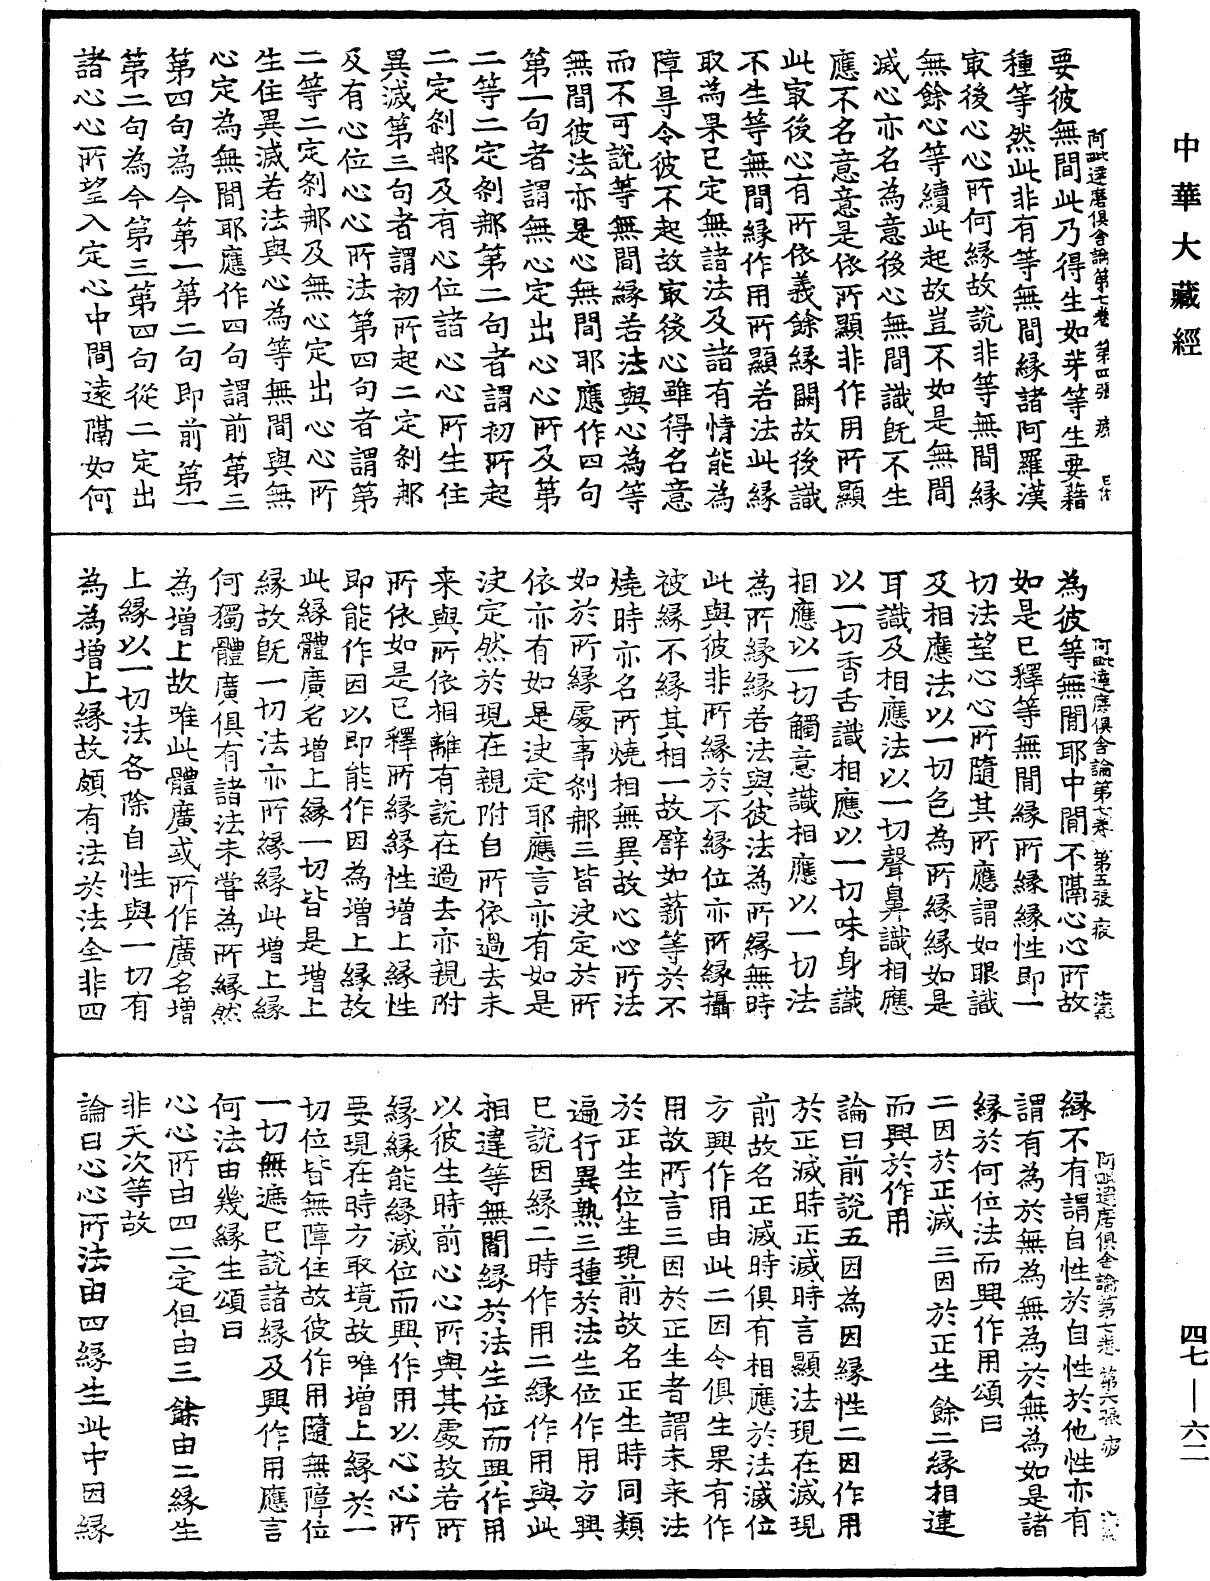 中華大藏經
阿毗達磨俱舍論第七卷 第四張
要彼無間此乃得生如芽等生要藉
種等然此非有等無間緣諸阿羅漢
㝡後心心所何緣故說非等無間緣
無餘心等續此起故豈不如是無間
滅心亦名為意後心無間識既不生
應不名意意是依所顯非作用所顯
此㝡後心有所依義餘緣闕故後識
不生等無間緣作用所顯若法此緣
取為果已定無諸法及諸有情能為
障㝵令彼不起故㝡後心雖得名意
而不可說等無間緣若法與心為等
無間彼法亦是心無間耶應作四句
第一句者謂無心定出心心所及第
二等二定剎那第二句者謂初所起
二定剎那及有心位諸心心所生住
異滅第三句者謂初所起二定剎那
及有心位心心所法第四句者謂第
二等二定剎那及無心定出心心所
生住異滅若法與心為等無間與無
心定為無間耶應作四句謂前第三
第四句為今第一第二句即前第一
第二句為今第三第四句從二定出
諸心心所望入定心中間遠隔如何
阿毗達磨俱舍論第七卷 第五張
為彼等無間耶中間不隔心心所故
如是已釋等無間緣所緣緣性即一
切法望心心所隨其所應謂如眼識
及相應法以一切色為所緣緣如是
耳識及相應法以一切聲鼻識相應
以一切香舌識相應以一切味身識
相應以一切觸意識相應以一切法
為所緣緣若法與彼法為所緣無時
此與彼非所緣於不緣位亦所緣攝
被緣不緣其相一故譬如薪等於不
燒時亦名所燒相無異故心心所法
如於所緣處事剎那三皆決定於所
依亦有如是決定耶應言亦有如是
決定然於現在親附自所依過去未
来與所依相離有說在過去亦親附
所依如是已釋所緣緣性增上緣性
即能作因以即能作因為增上緣故
此緣體廣名增上緣一切皆是增上
緣故既一切法亦所緣緣此增上緣
何獨體廣俱有諸法未嘗為所緣然
為增上故唯此體廣或所作廣名增
上緣以一切法各除自性與一切有
為為增上緣故頗有法於法全非四
阿毗達磨俱舍論第七卷 第六張
緣不有謂自性於自性於他性亦有
謂有為於無為無為於無為如是諸
緣於何位法而興作用頌曰
二因於正滅 三因於正生 餘二緣相違
而興於作用
論曰前說五因為因緣性二因作用
於正滅時正滅時言顯法現在滅現
前故名正滅時俱有相應於法滅位
方興作用由此二因令俱生果有作
用故所言三因於正生者謂未来法
於正生位生現前故名正生時同類
遍行異熟三種於法生位作用方興
已說因緣二時作用二緣作用與此
相違等無間緣於法生位而興作用
以彼生時前心心所與其處故若所
緣緣能緣滅位而興作用以心心所
要現在時方取境故唯增上緣於一
切位皆無障住故彼作用隨無障位
一切無遮已說諸緣及興作用應言
何法由幾緣生頌曰
心心所由四 二定但由三 餘由二緣生
非天次等故
論曰心心所法由四緣生此中因緣
四七—六二